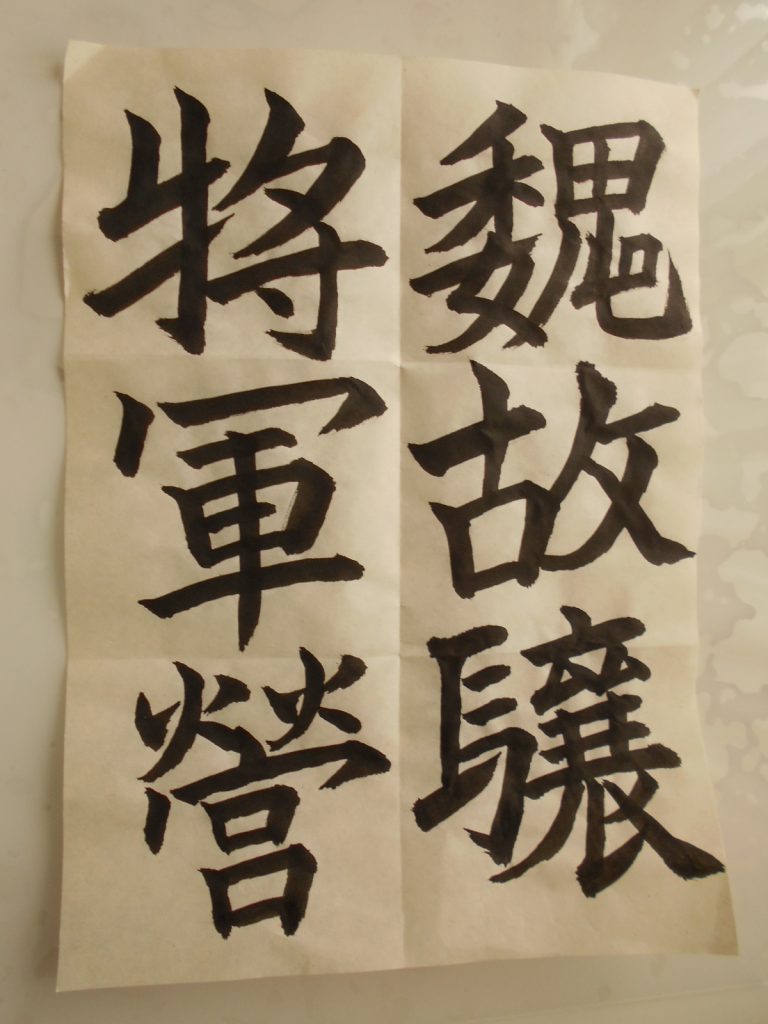 魏故驤
將軍營